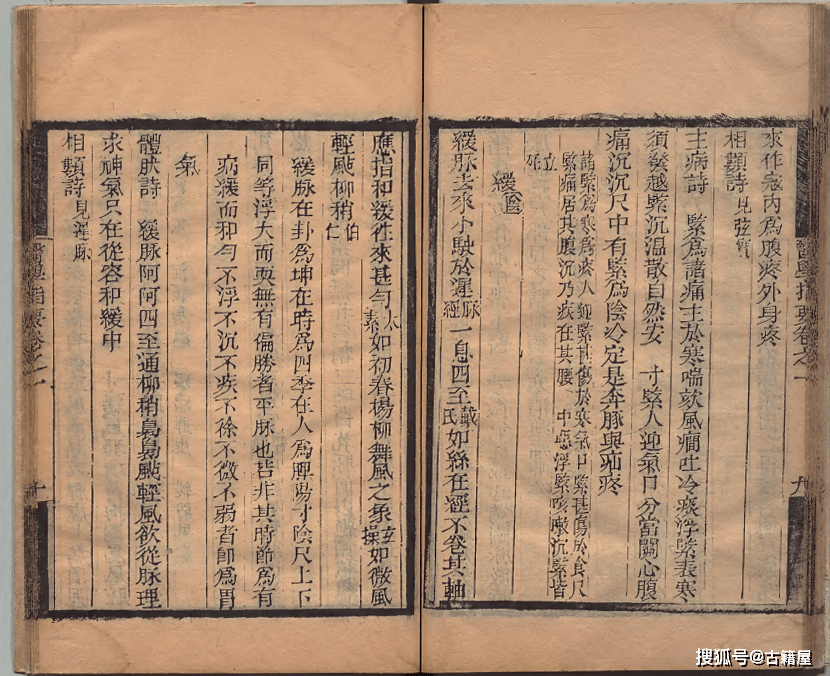 來作寇內爲腹疼外身疼
相類詩 見弦實
主病詩 緊爲諸痛主於寒喘欬風癇吐冷痰浮緊表寒
須發越緊沉溫散自然安 寸緊人迎氣口分當關心腹
痛沉沉尺中有緊爲陰冷定是奔豚與疝疼
諸緊爲寒爲疼人迎緊甚傷於寒氣口緊甚傷於食尺
緊痛居其腹沉乃疾在其腰 中惡浮緊咳嗽沉緊皆
死
緩陰
緩脉去來小駛於遲脉經一息四至戴氏如絲在經不卷其軸
醫學指要卷之一 九
應指和緩往來甚勻太素如初春楊柳舞風之象操如微風
輕颭柳稍伯仁
緩脉在卦爲坤在時爲四季在人爲脾陽寸陰尺上下
同等浮大而耎無有偏勝者平脉也若非其時節爲有
病緩而和勻不浮不沉不疾不徐不微不弱者卽爲胃
氣
體狀詩 緩脉阿阿四至通柳稍裊裊颭輕風欲從脉理
求神氣只在從容和緩中
相類詩見遲脉
醫學指要卷之一 十
搜狐号@古籍屋